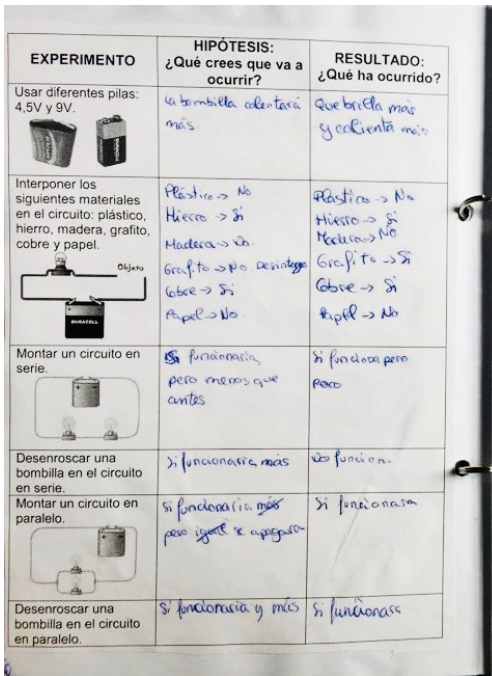 EXPERIMENTO
HIPÓTESIS:
¿Qué crees que va a
ocurrir?
RESULTADO:
¿Qué ha ocurrido?
Usar diferentes pilas:
4,5V y 9V.
La bombilla calentará
más.
Que brilla más
y calienta más
Interponer los
siguientes materiales
en el circuito: plástico,
hierro, madera, grafito,
cobre y papel.
Objeto
DURACELL
Plástico → No
Hierro → Si
Madera → No.
Grafito → No.
Cobre → Si
Papel → No.
Plastico → No
Hierro → Si
Madera → NO
Grafito → Si
Cobre → Si
Papel → No
Montar un circuito en
serie.
Si funcionaria,
pero menos que
antes
Si funciona pero
poco
Desenroscar una
bombilla en el circuito
en serie.
Si funcionaria más
No funcion.
Montar un circuito en
paralelo.
Si funcionaria más
pero igual se apagara
Si funcionara
Desenroscar una
bombilla en el circuito
en paralelo.
Si funcionaria y más
Si funcionara